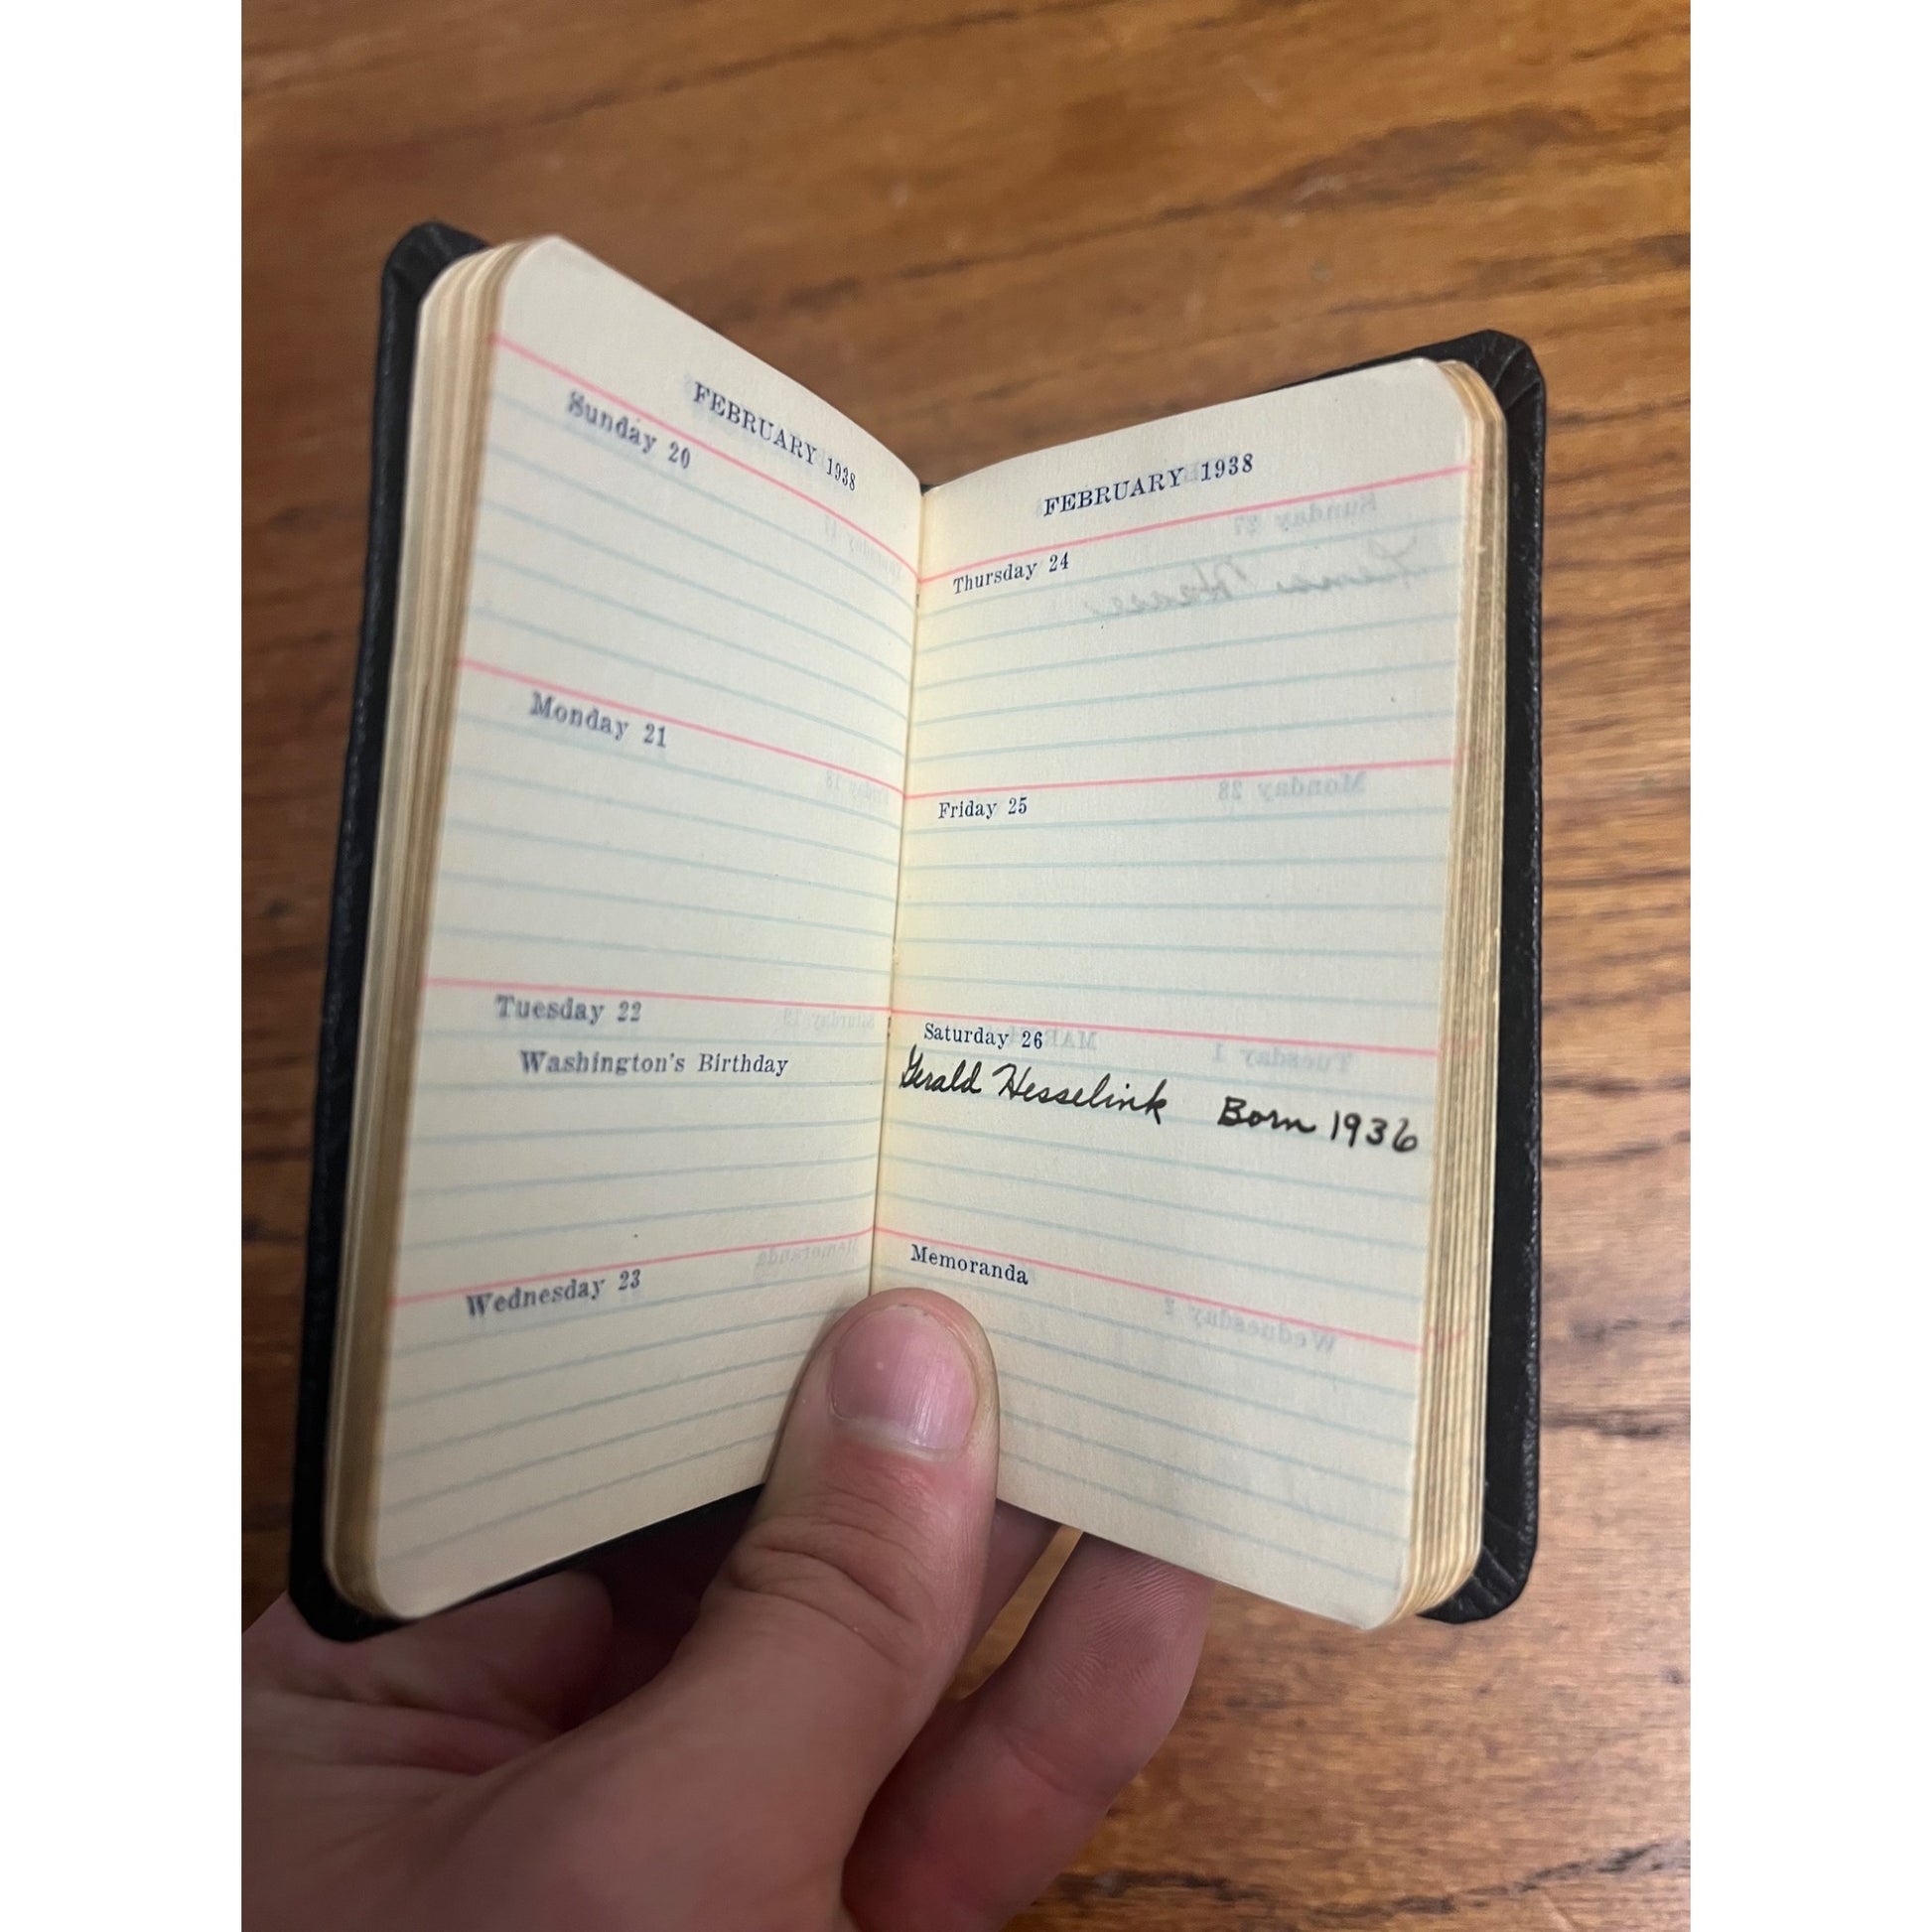 FEBRUARY 1938
Sunday 20
Monday 21
Tuesday 22
Washington's Birthday
Wednesday 23
FEBRUARY 1938
Thursday 24
Friday 25
Saturday 26
Gerald Hesselink Born 1936
Memoranda